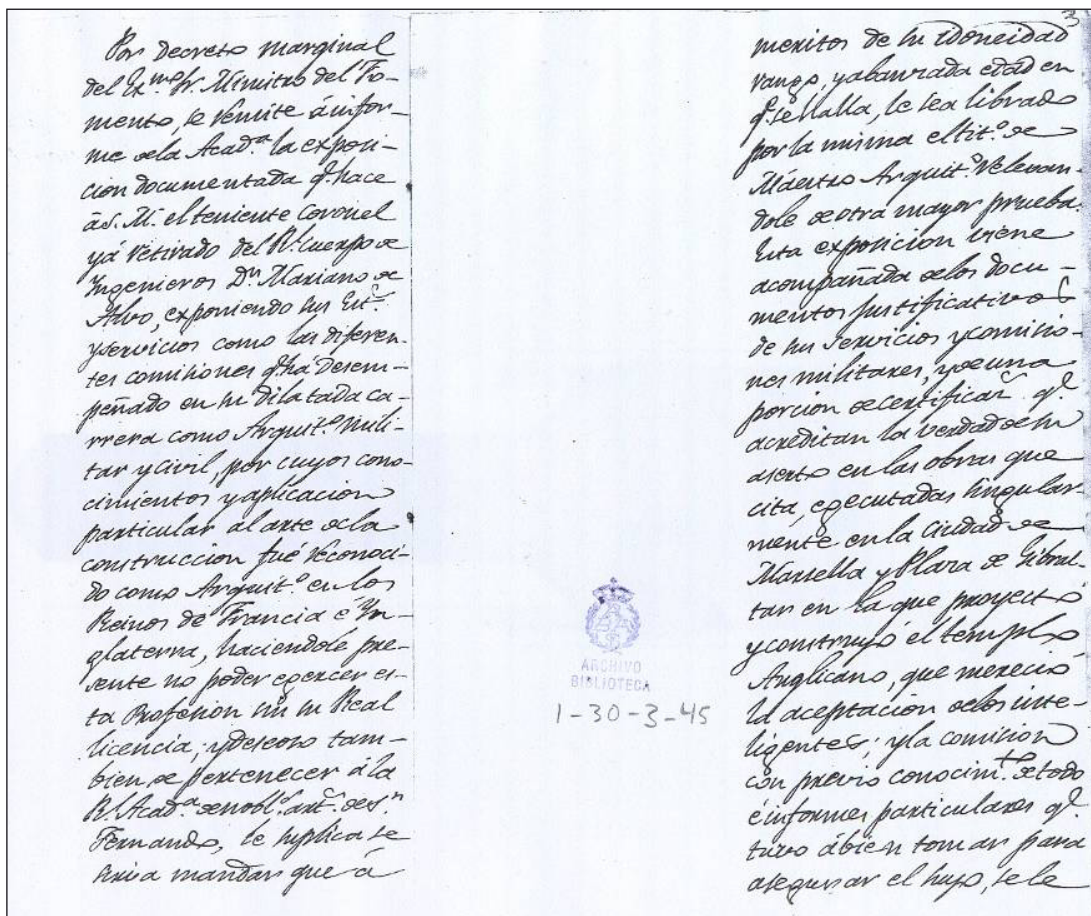 Por decreto marginal
del Ex.mo Sr. Ministro del Fo-
mento, se remite á infor-
me de la Acad.a la exposi-
cion documentada q.e hace
á S. M. el teniente Coronel
yá retirado del R.l Cuerpo de
Ingenieros D.n Mariano de
expon iendo sus
y servicios como las diferen-
tes comisiones q.e há desem-
peñado en su dilatada ca-
rrera como Arquit.o mili-
tar y civil, por cuyos cono-
cimientos y aplicacion
particular al arte de la
construccion fué reconoci-
do como Arquit.o en los
Reinos de Francia e Yn-
glaterra, haciendole pre-
sente no poder egercer es-
ta Profesion sin su Real
licencia; y deseoso tam-
bien de pertenecer á la
R.l Acad.a de nobl.s art.s de S.n
Fernando, le suplica se
sirva mandar que á
3
meritos de su idoneidad
rango, y abanzada edad en
q.e se halla, le sea librado
por la misma el tit.o de
Maestro Arquit.o relevan-
dole de otra mayor prueba.
Esta exposicion viene
acompañada de los docu-
mentos justificativos
de sus servicios y comisio-
nes militares, y de una
porcion de certificac.s q.e
acreditan la verdad de su
aserto en las obras que
cita, egecutadas singular-
mente en la Ciudad de
Marsella y Plaza de Gibral-
tar en la que proyectó
y construyó el templo
Anglicano, que mereció
la aceptacion de los inte-
ligentes; y la comision
con previo conocim.to de todo
é informes particulares q.e
tuvo á bien tomar para
asegurar el suyo, se le
ARCHIVO
BIBLIOTECA
1-30-3-45